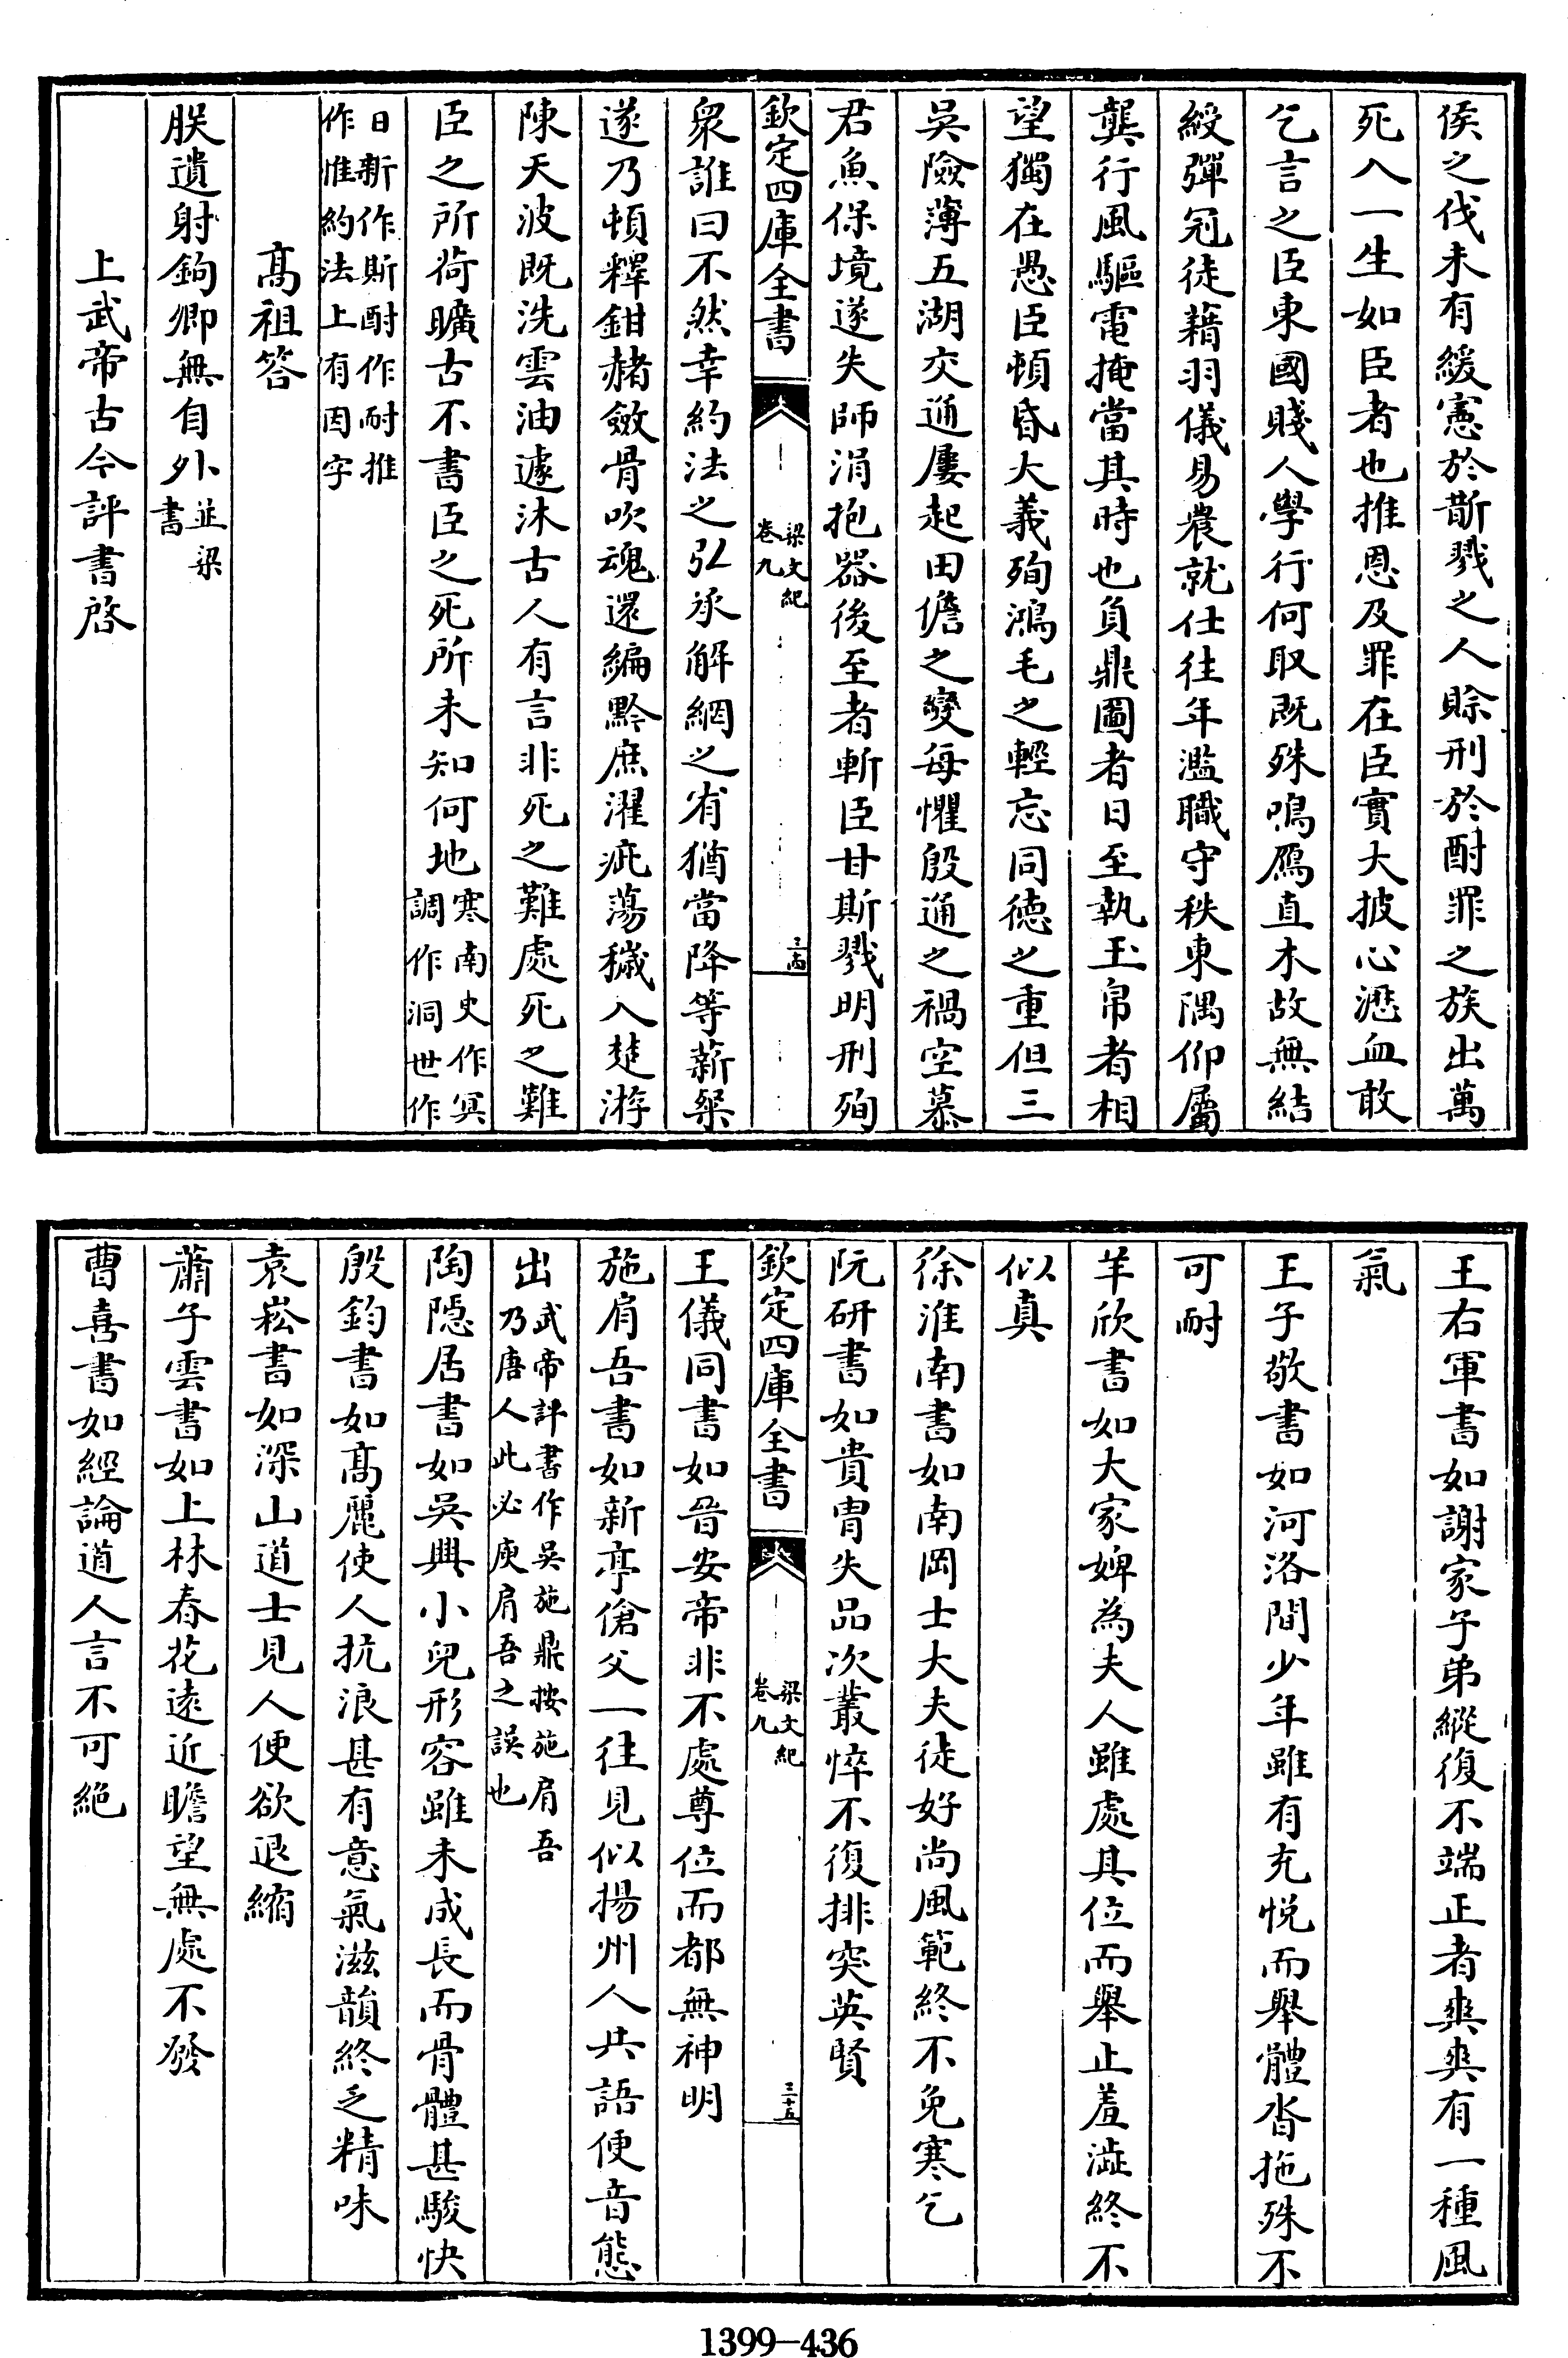 侯之伐未有緩憲於斮戮之人賒刑於酎罪之族出萬
死入一生如臣者也推恩及罪在臣實大披心瀝血敢
乞言之臣東國賤人學行何取既殊鳴鴈直木故無結
綬彈冠徒藉羽儀易農就仕往年濫職守秩東隅仰屬
龔行風驅電掩當其時也負鼎圖者日至執玉帛者相
望獨在愚臣頓昏大義殉鴻毛之輕忘同德之重但三
吳險薄五湖交通屢起田儋之變每懼殷通之禍空慕
君魚保境遂失師涓抱器後至者斬臣甘斯戮明刑殉
欽定四庫全書
梁文紀
卷九
三十四
衆誰曰不然幸約法之弘承解網之宥猶當降等薪粲
遂乃頓釋鉗赭斂骨吹魂還編黔庶濯疵蕩穢入楚游
陳天波既洗雲油遽沐古人有言非死之難處死之難
臣之所荷曠古不書臣之死所未知何地寒南史作冥
調作洞世作
日新作斯酎作耐推
作惟約法上有因字
高祖答
朕遺射鉤卿無自外並梁
書
上武帝古今評書啓
王右軍書如謝家子弟縱復不端正者爽爽有一種風
氣
王子敬書如河洛間少年雖有充悅而舉體沓拖殊不
可耐
羊欣書如大家婢為夫人雖處其位而舉止羞澁終不
似真
徐淮南書如南岡士大夫徒好尚風範終不免寒乞
阮研書如貴胄失品次叢悴不復排突英賢
欽定四庫全書
梁文紀
卷九
三十五
王儀同書如晉安帝非不處尊位而都無神明
施肩吾書如新亭傖父一往見似揚州人共語便音態
出武帝評書作吳施鼎按施肩吾
乃唐人此必庾肩吾之誤也
陶隱居書如吳興小兒形容雖未成長而骨體甚駿快
殷鈞書如高麗使人抗浪甚有意氣滋韻終乏精味
袁崧書如深山道士見人便欲退縮
蕭子雲書如上林春花遠近瞻望無處不發
曹喜書如經論道人言不可絕
1399—436